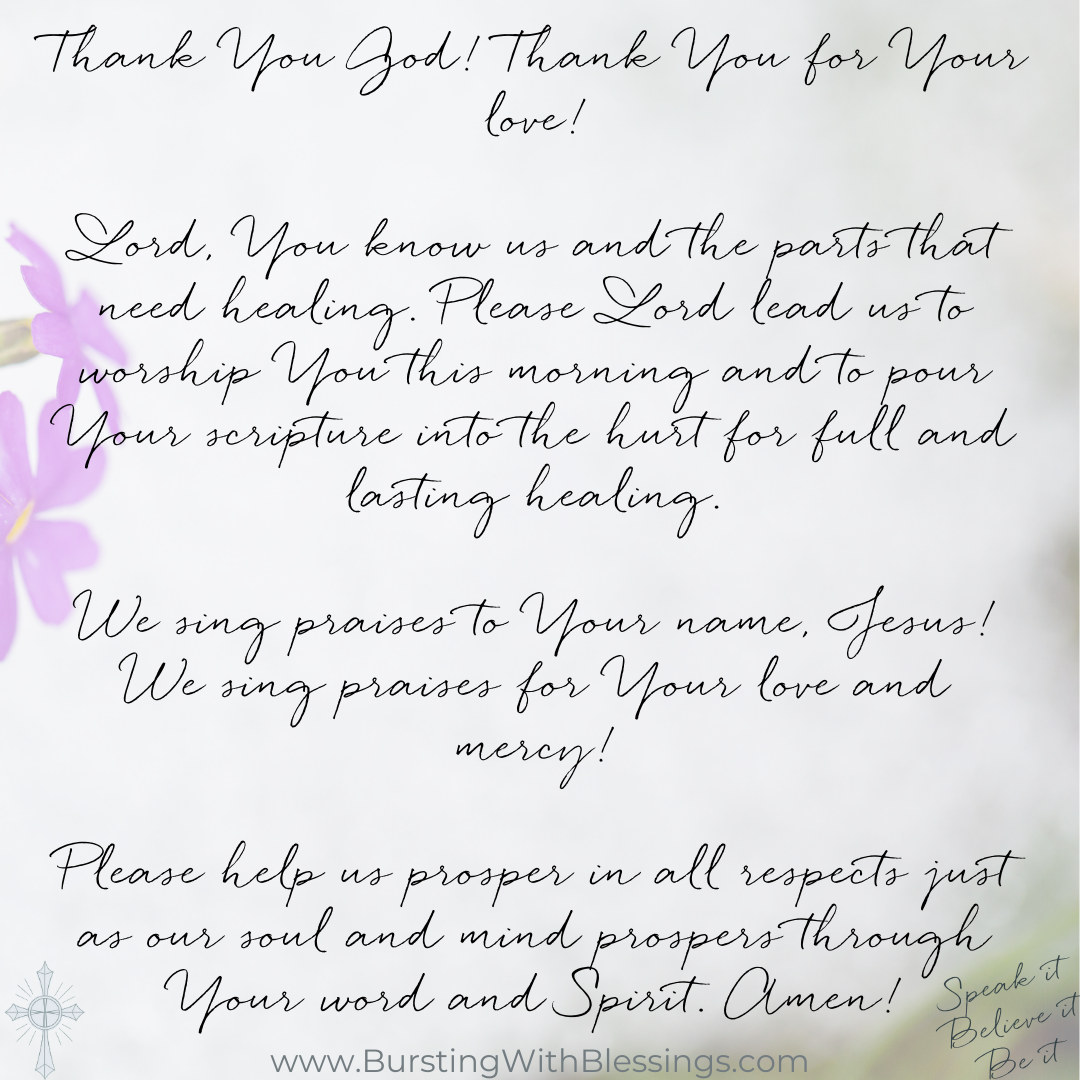 Thank You God! Thank You for Your
love!
Lord, You know us and the parts that
need healing. Please Lord lead us to
worship You this morning and to pour
Your scripture into the hurt for full and
lasting healing.
We sing praises to Your name, Jesus!
We sing praises for Your love and
mercy!
Please help us prosper in all respects just
as our soul and mind prospers through
Your word and Spirit. Amen!
Speak it
Believe it
Be it
www.BurstingWithBlessings.com